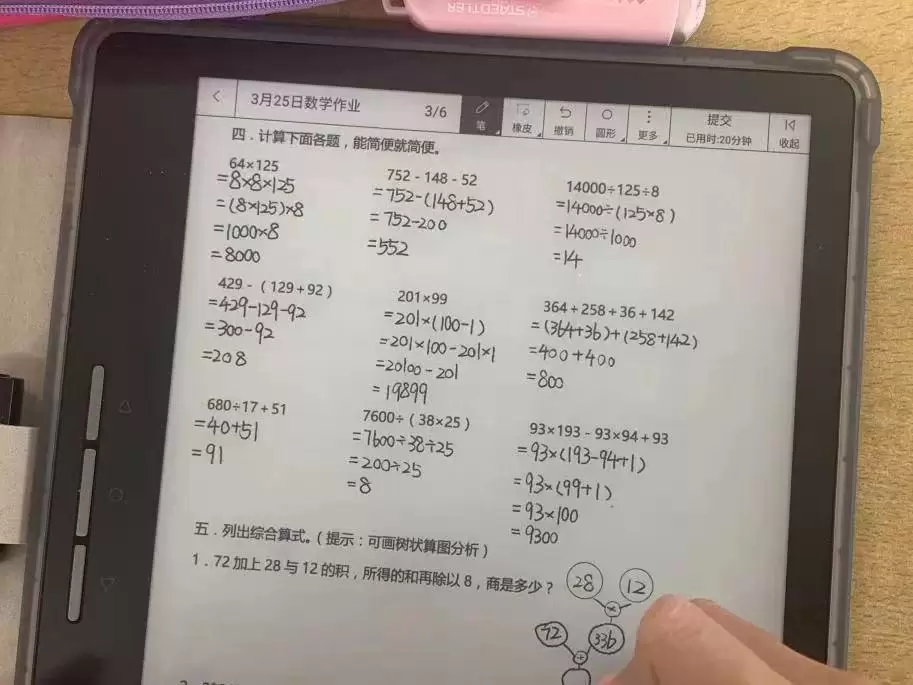 STAEDTLER
3月25日数学作业
3/6
笔
橡皮
撤销
圆形
更多
提交
已用时:20分钟
收起
四．计算下面各题，能简便就简便。
64×125
=8×8×125
=(8×125)×8
=1000×8
=8000
752-148-52
=752-(148+52)
=752-200
=552
14000÷125÷8
=14000÷(125×8)
=14000÷1000
=14
429-(129+92)
=429-129-92
=300-92
=208
201×99
=201×(100-1)
=201×100-201×1
=20100-201
=19899
364+258+36+142
=(364+36)+(258+142)
=400+400
=800
680÷17+51
=40+51
=91
7600÷(38×25)
=7600÷38÷25
=200÷25
=8
93×193-93×94+93
=93×(193-94+1)
=93×(99+1)
=93×100
=9300
五．列出综合算式。(提示：可画树状算图分析)
1．72加上28与12的积，所得的和再除以8，商是多少？
28 12
×
72 336
+